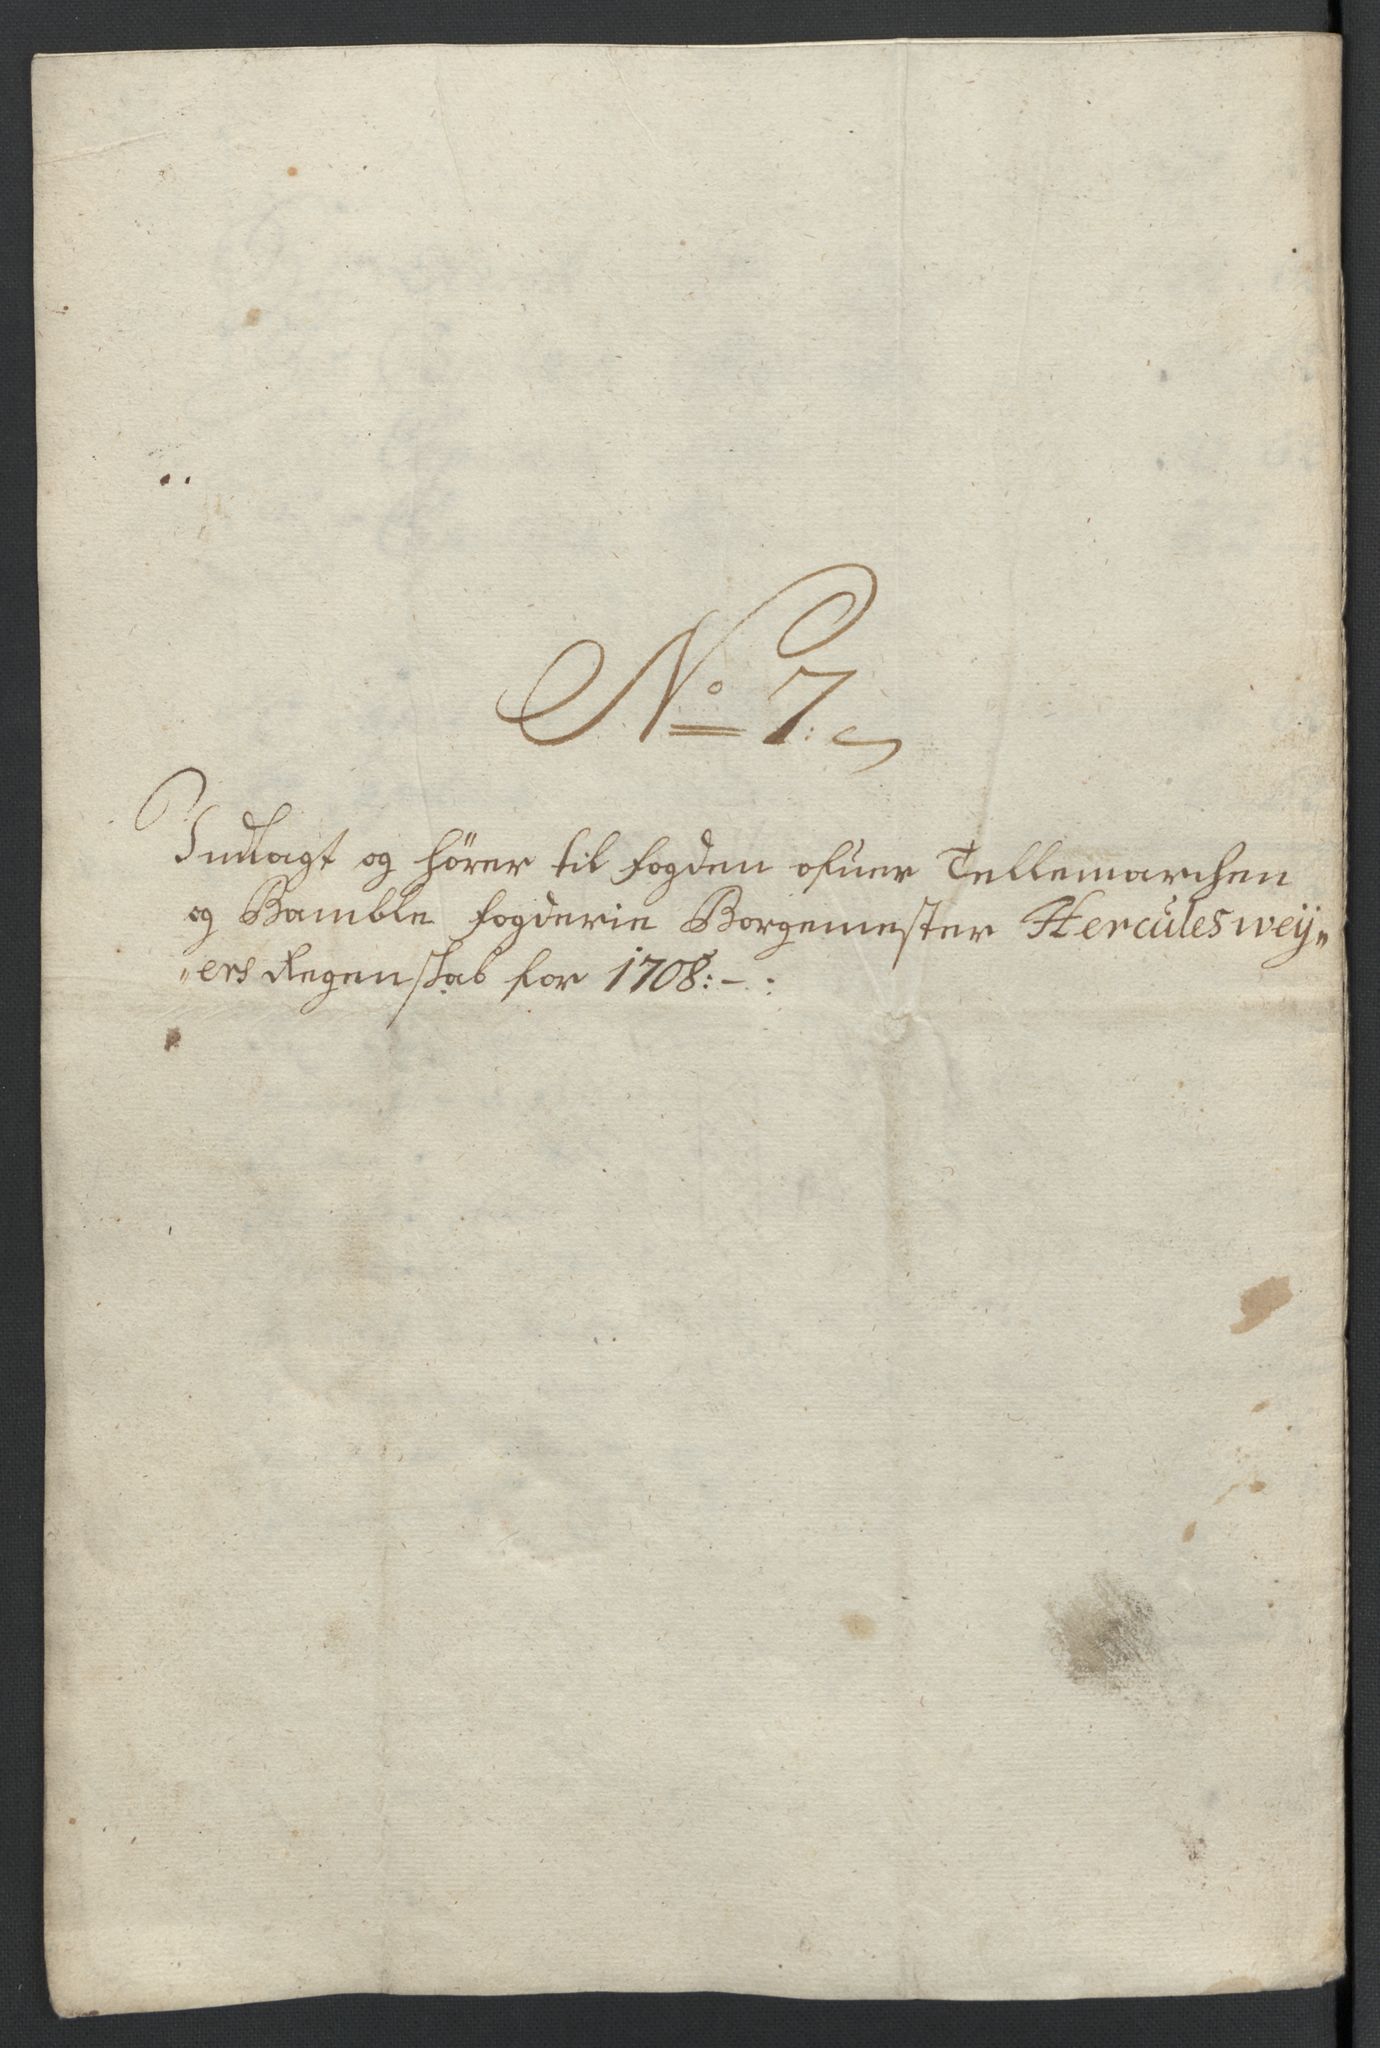 No 7.
Indlagt og hører til fogden ofuer Tellemarchen
og Bamble fogderie Borgemester Hercules weÿ„
„ers Regenskab for 1708:-: